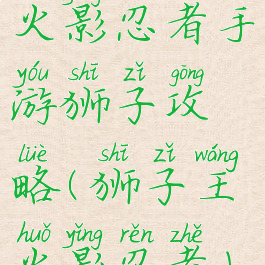 火影忍者手
yóu shī zǐ gōng
游狮子攻
lüè shī zǐ wáng
略(狮子王
huǒ yǐng rěn zhě
火影忍者)